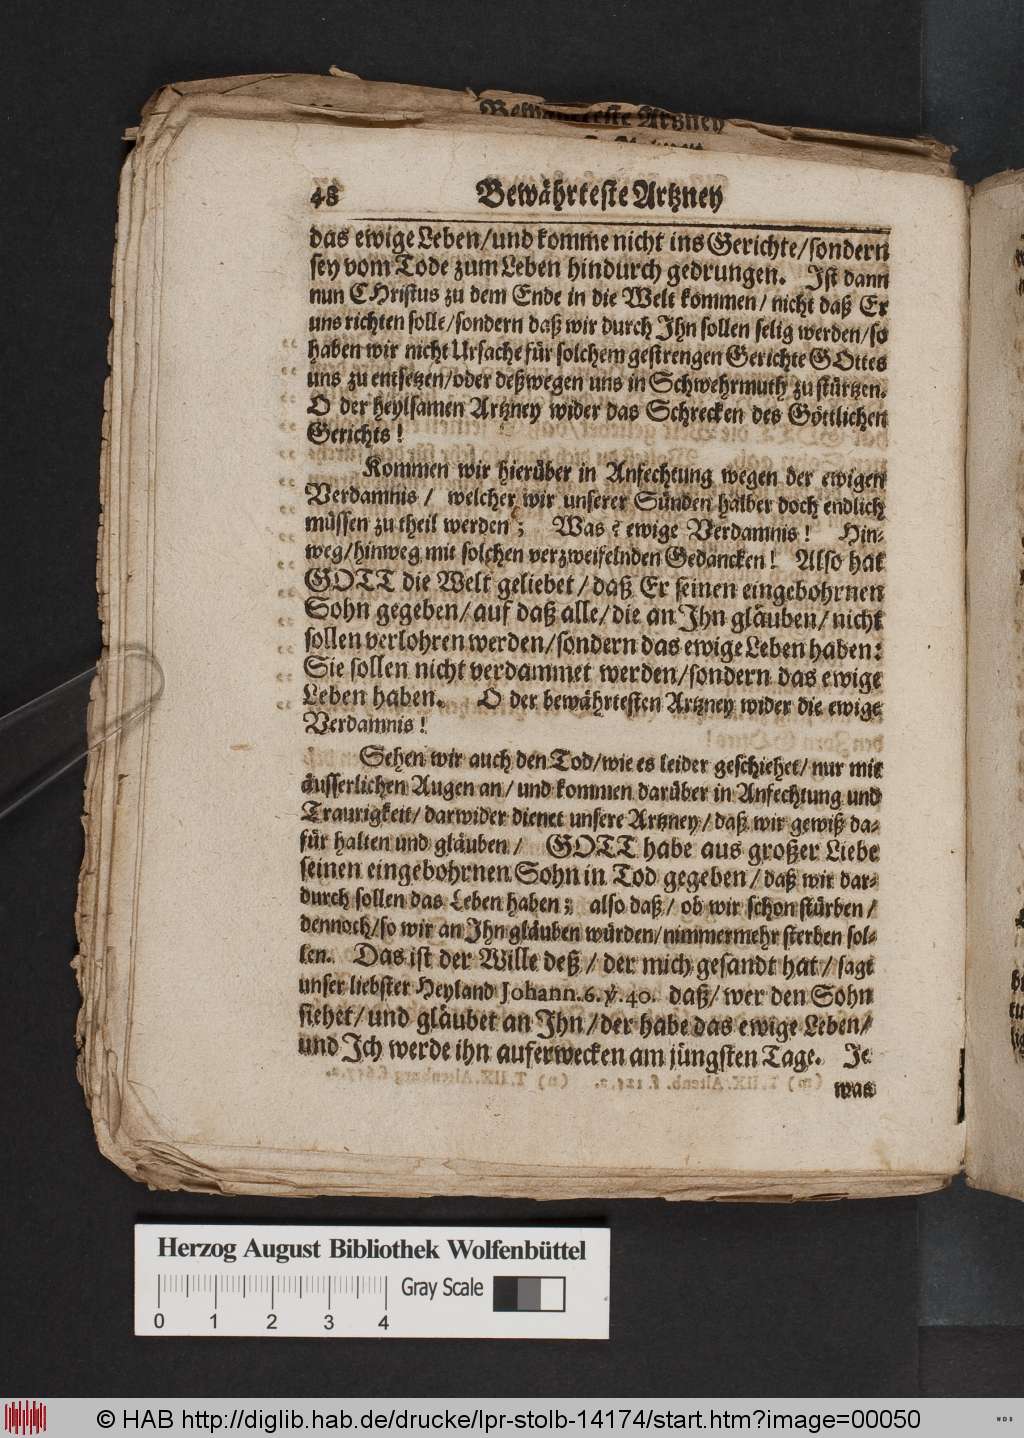 Bewährteste Artzney
48 Bewährteste Artzney
das ewige Leben/und komme nicht ins Gerichte/sondern
sey vom Tode zum Leben hindurch gedrungen. Ist dann
nun CHristus zu dem Ende in die Welt kommen/ nicht daß Er
uns richten solle/sondern daß wir durch Ihn sollen selig werden/so
haben wir nicht Ursache für solchem gestrengen Gerichte GOttes
uns zu entsetzen/oder deßwegen uns in Schwehrmuth zu stürtzen.
O der heylsamen Artzney wider das Schrecken des Göttlichen
Gerichts!
Kommen wir hierüber in Anfechtung wegen der ewigen
Verdamnis / welcher wir unserer Sünden halber doch endlich
müssen zu theil werden; Was? ewige Verdamnis! Hin-
weg/hinweg mit solchen verzweifelnden Gedancken! Also hat
GOTT die Welt geliebet/daß Er seinen eingebohrnen
Sohn gegeben/auf daß alle/die an Ihn gläuben/nicht
sollen verlohren werden/sondern das ewige Leben haben:
Sie sollen nicht verdammet werden/sondern das ewige
Leben haben. O der bewährtesten Artzney wider die ewige
Verdamnis!
Sehen wir auch den Tod/wie es leider geschiehet/nur mit
äusserlichen Augen an/und kommen darüber in Anfechtung und
Traurigkeit/darwider dienet unsere Artzney/daß wir gewiß da-
für halten und gläuben/ GOTT habe aus großer Liebe
seinen eingebohrnen Sohn in Tod gegeben/daß wir dar-
durch sollen das Leben haben; also daß/ ob wir schon stürben/
dennoch/so wir an Ihn gläuben würden/nimmermehr sterben sol-
len. Das ist der Wille deß/der mich gesandt hat/sagt
unser liebster Heyland Johann. 6. ℣. 40. daß/wer den Sohn
siehet/und gläubet an Ihn/der habe das ewige Leben/
und Ich werde ihn auferwecken am jüngsten Tage. Je
was
Herzog August Bibliothek Wolfenbüttel
Gray Scale
0 1 2 3 4
© HAB http://diglib.hab.de/drucke/lpr-stolb-14174/start.htm?image=00050